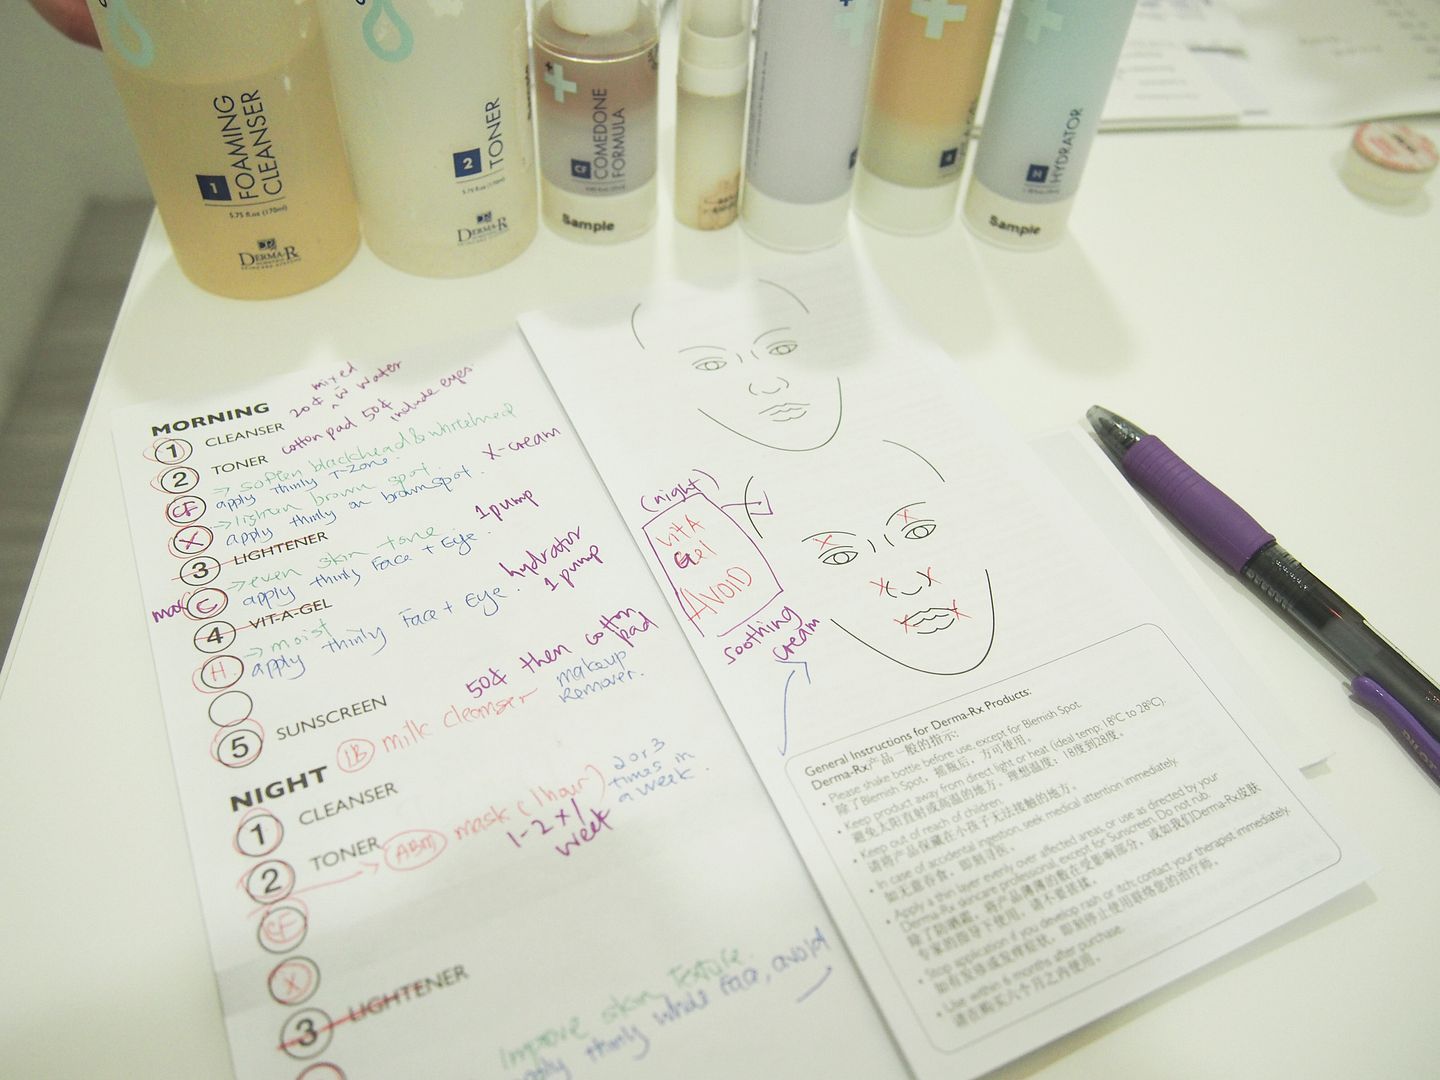 1 FOAMING
CLEANSER
5.75 fl.oz (170ml)
DERMA-R
2 TONER
5.75 fl.oz (170ml)
DERMA-R
CF COMEDONE
FORMULA
Sample
H HYDRATOR
Sample
MORNING
20¢ mixed w water
1 CLEANSER
cotton pad 50¢ include eyes
2 TONER
→ soften blackhead & whitehead
CF apply thinly T-zone.
→ lighten brown spot. X-cream
X apply thinly on brown spot.
3 LIGHTENER
→ even skin tone 1 pump
C apply thinly Face + Eye.
4 VIT-A-GEL
→ moist hydrator
H. apply thinly Face + Eye. 1 pump
5 SUNSCREEN
50¢ then cotton pad
milk cleanser makeup
Remover.
NIGHT
1 CLEANSER
2 TONER
→ mask (1 hour) 2 or 3
times in
a week.
1-2 x /
week
CF
X
3 LIGHTENER
Improve skin texture.
apply thinly whole face, avoid
(night)
Vit A
Gel
AVOID
Soothing
cream
General Instructions for Derma-Rx Products:
Derma-Rx产品一般的指示:
• Please shake bottle before use, except for Blemish Spot.
除了Blemish Spot, 摇瓶后, 方可使用。
• Keep product away from direct light or heat (ideal temp: 18ºC to 28ºC).
避免太阳直射或高温的地方。理想温度: 18度到28度。
• Keep out of reach of children.
请将产品保藏在小孩子无法接触的地方。
• In case of accidental ingestion, seek medical attention immediately.
如无意吞食, 即刻寻医。
• Apply a thin layer evenly over affected areas, or use as directed by your
Derma-Rx skincare professional, except for Sunscreen. Do not rub.
除了防晒霜, 将产品薄薄的敷在受影响部分, 或如我们Derma-Rx皮肤
专家的指导下使用, 请不要搓揉。
• Stop application if you develop rash or itch; contact your therapist immediately.
如有发疹或发痒症状, 即刻停止使用联络您的治疗师。
• Use within 6 months after purchase.
请在购买六个月之内使用。
PILOT